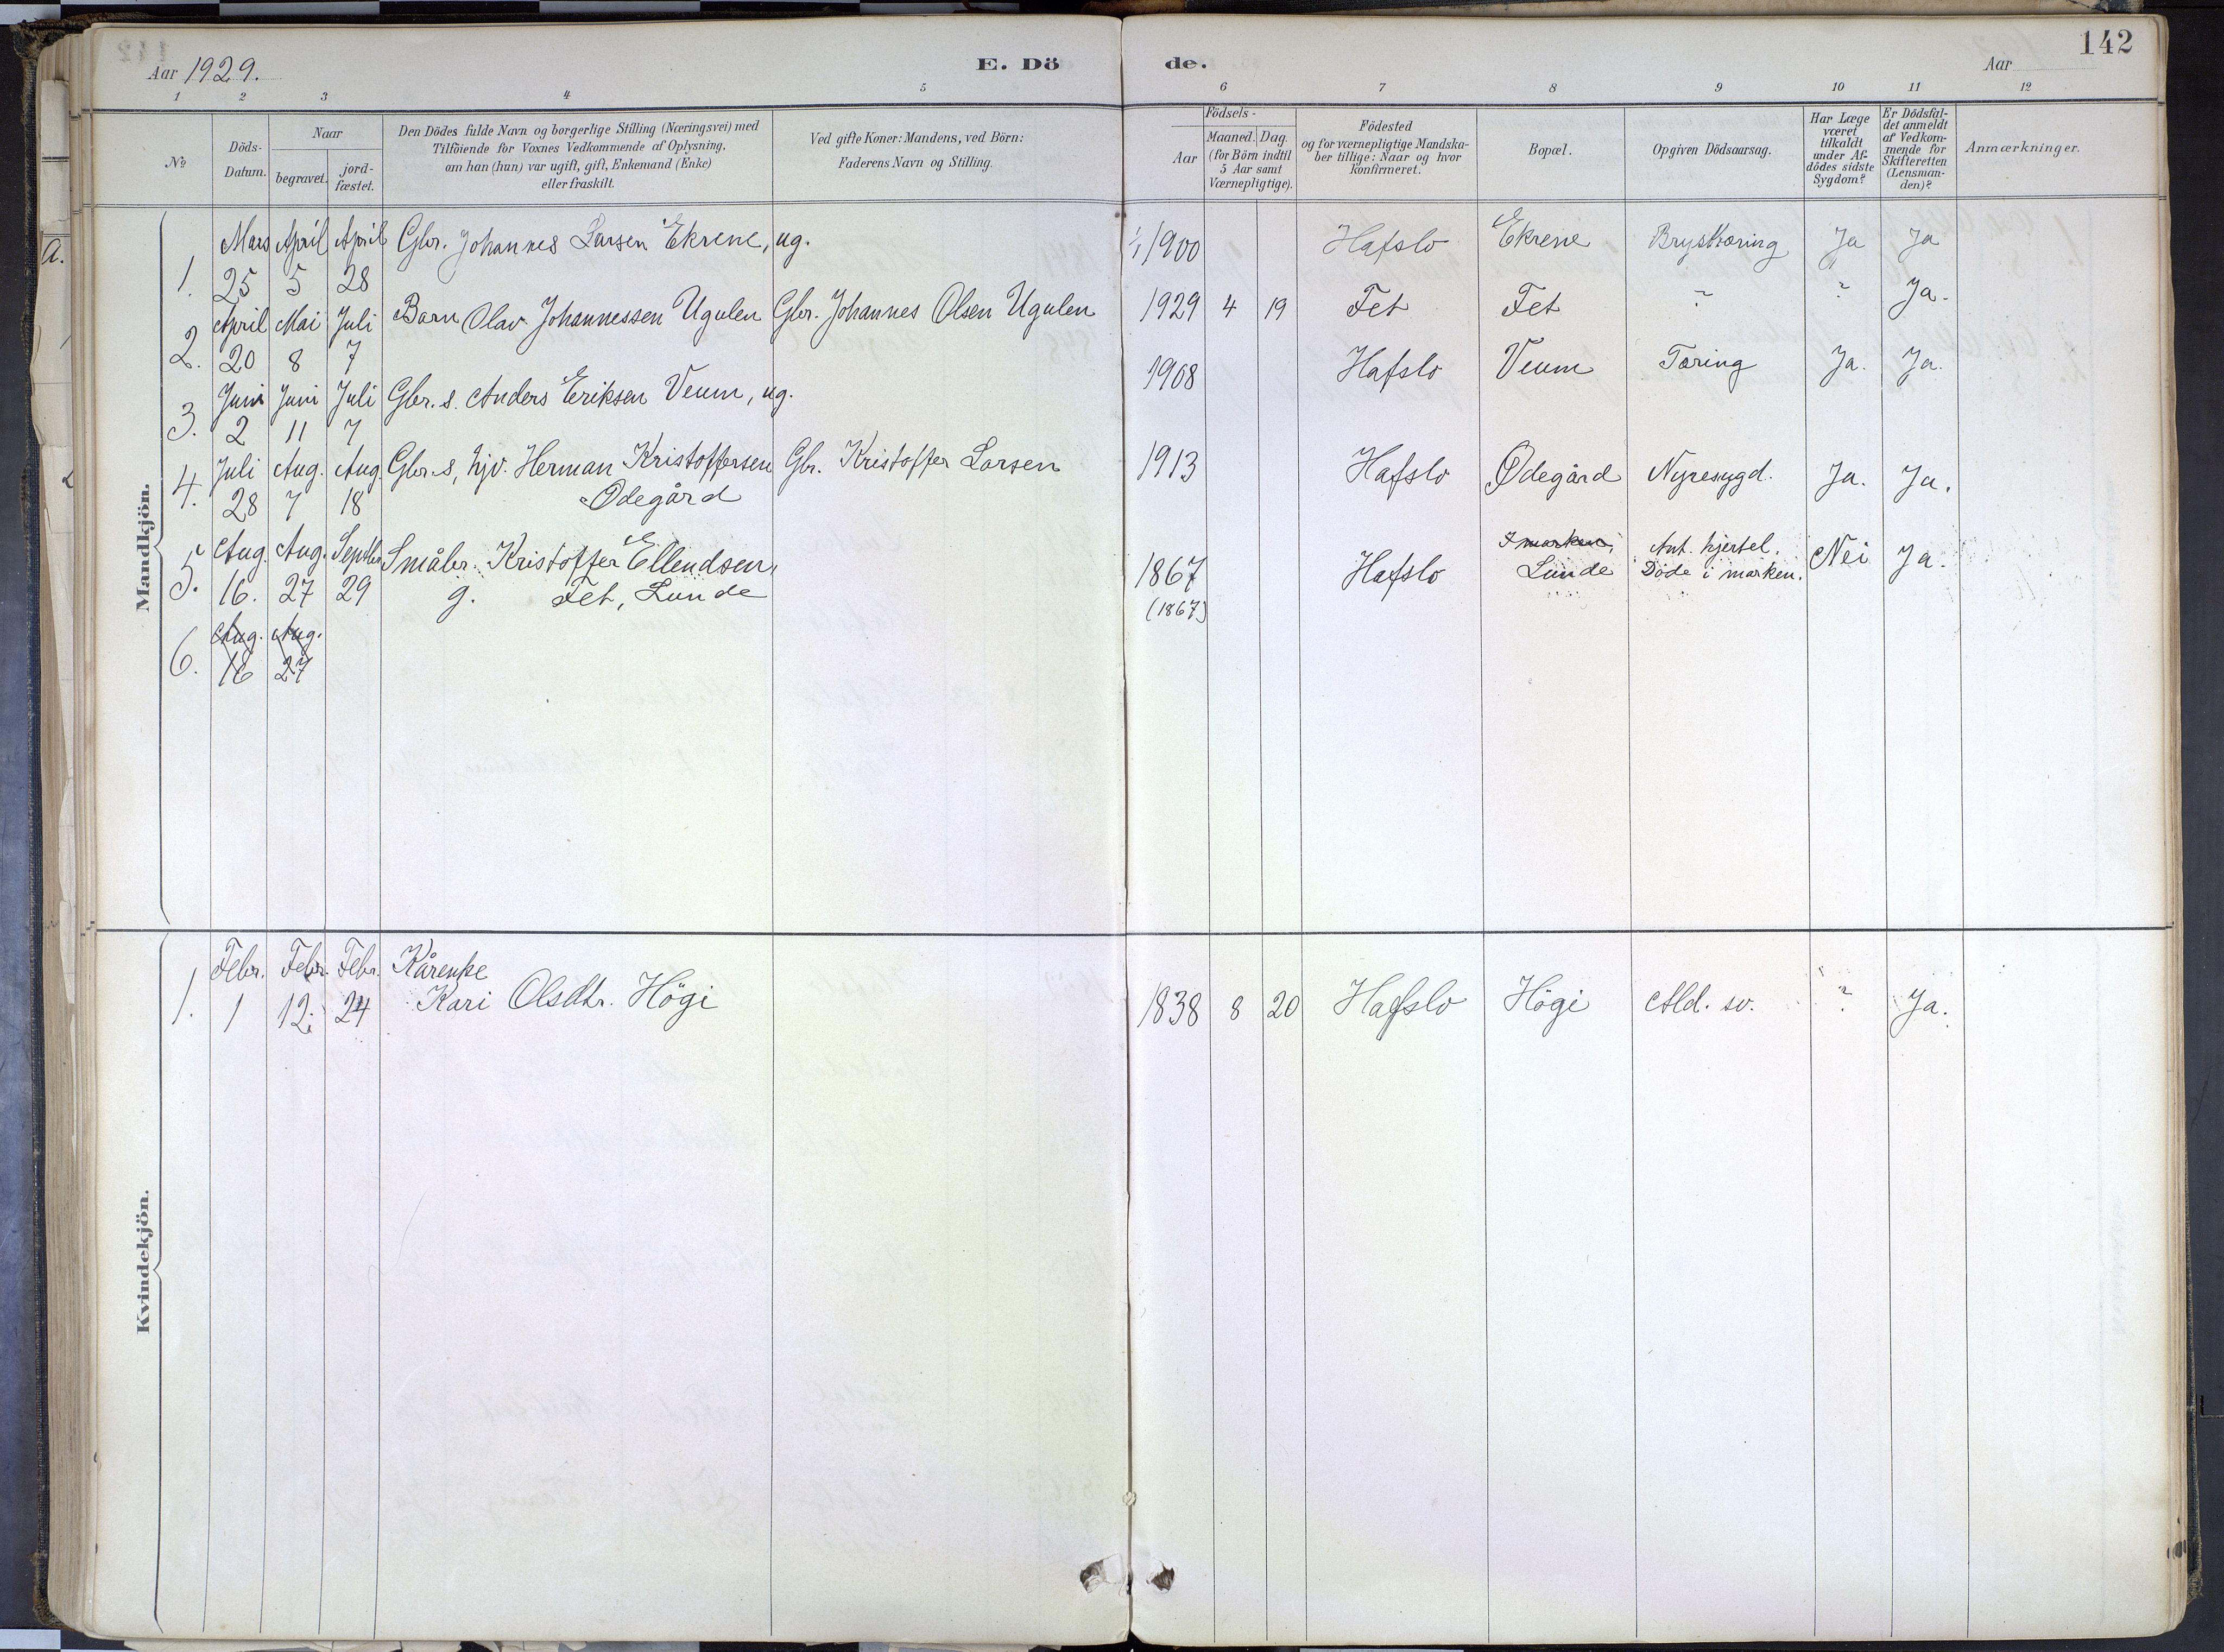 142
Aar 1929. E. Dö de. Aar
1 2 3 4 5 6 7 8 9 10 11 12
No
Döds-
Datum.
Naar
begravet.
jord-
fæstet.
Den Dödes fulde Navn og borgerlige Stilling (Næringsvei) med
Tilföiende for Voxnes Vedkommende af Oplysning,
om han (hun) var ugift, gift, Enkemand (Enke)
eller fraskilt.
Ved gifte Koner: Mandens, ved Börn:
Faderens Navn og Stilling.
Födsels-
Aar
Maaned. Dag.
(for Börn indtil
5 Aar samt
Værnepligtige).
Födested
og for værnepligtige Mandska-
ber tillige: Naar og hvor
konfirmeret.
Bopæl.
Opgiven Dödsaarsag.
Har Læge
været
tilkaldt
under Af-
dödes sidste
Sygdom?
Er Dödsfal-
det anmeldt
af Vedkom-
mende for
Skifteretten
(Lensman-
den)?
Anmærkninger.
Mandkjön.
Mars April April Gbr. Johannes Larsen Ekrene, ug. 1/1 1900 Hafslo Ekrene Brysttæring Ja Ja
1. 25 5 28
April Mai Juli Barn Olav Johannessen Ugulen Gbr. Johannes Olsen Ugulen 1929 4 19 Fet Fet ? ? Ja.
2. 20 8 7
Juni Juni Juli Gbr. s. Anders Eriksen Veum, ug. 1908 Hafslo Veum Tæring Ja. Ja.
3. 2 11 7
Juli Aug. Aug. Gbr. s, hjv. Herman Kristoffersen Gbr. Kristoffer Larsen 1913 Hafslo Ødegård Nyresygd. Ja. Ja.
4. 28 7 18 Ødegård
Aug. Aug. Septbr Småbr. Kristoffer Ellendsen, 1867 Hafslo I marken, Ant. hjertel. Nei Ja.
5. 16. 27 29 g. Fet, Lunde (1867) Lunde Døde i marken.
Aug. Aug.
6. 16 27
Kvindekjön.
Febr. Febr. Febr. Kårenke
1. 1 12. 24 Kari Olsdtr. Högi 1838 8 20 Hafslo Högi Ald. sv. ? Ja.